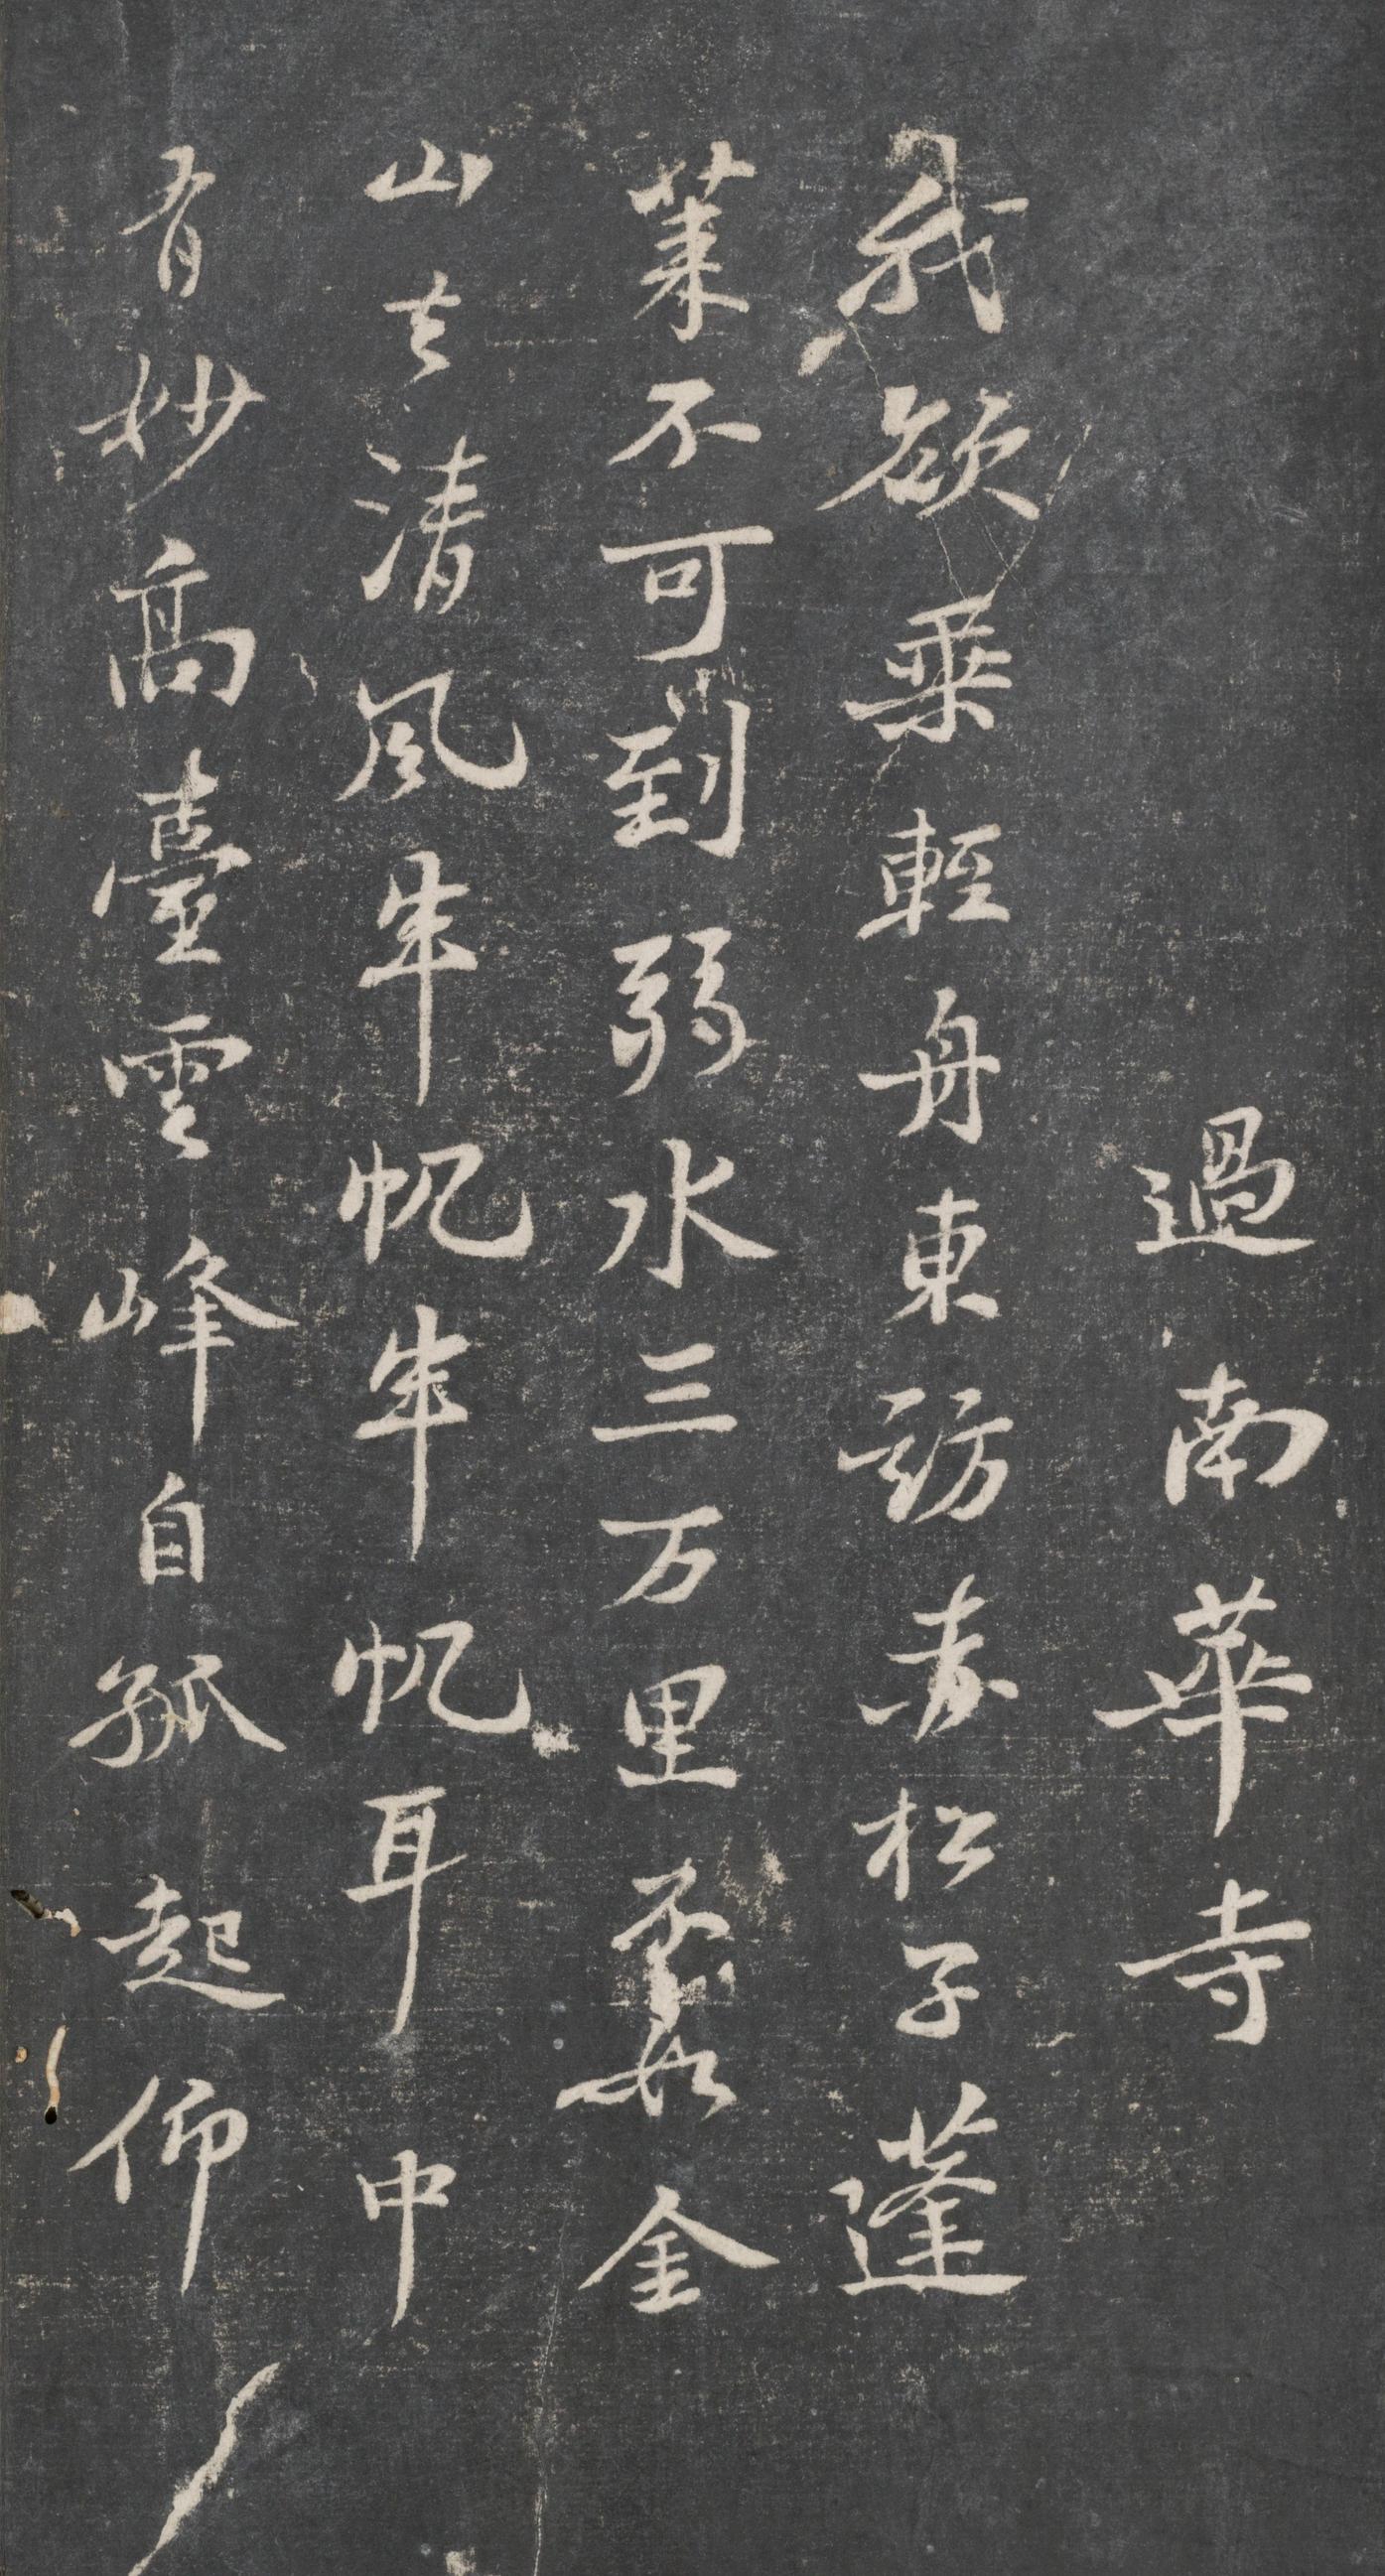 過南華寺
我欲乘輕舟東訪赤松子蓬
萊不可到弱水三万里不如金
山去清風半帆半帆耳中
有妙高臺雲峰自孤起仰